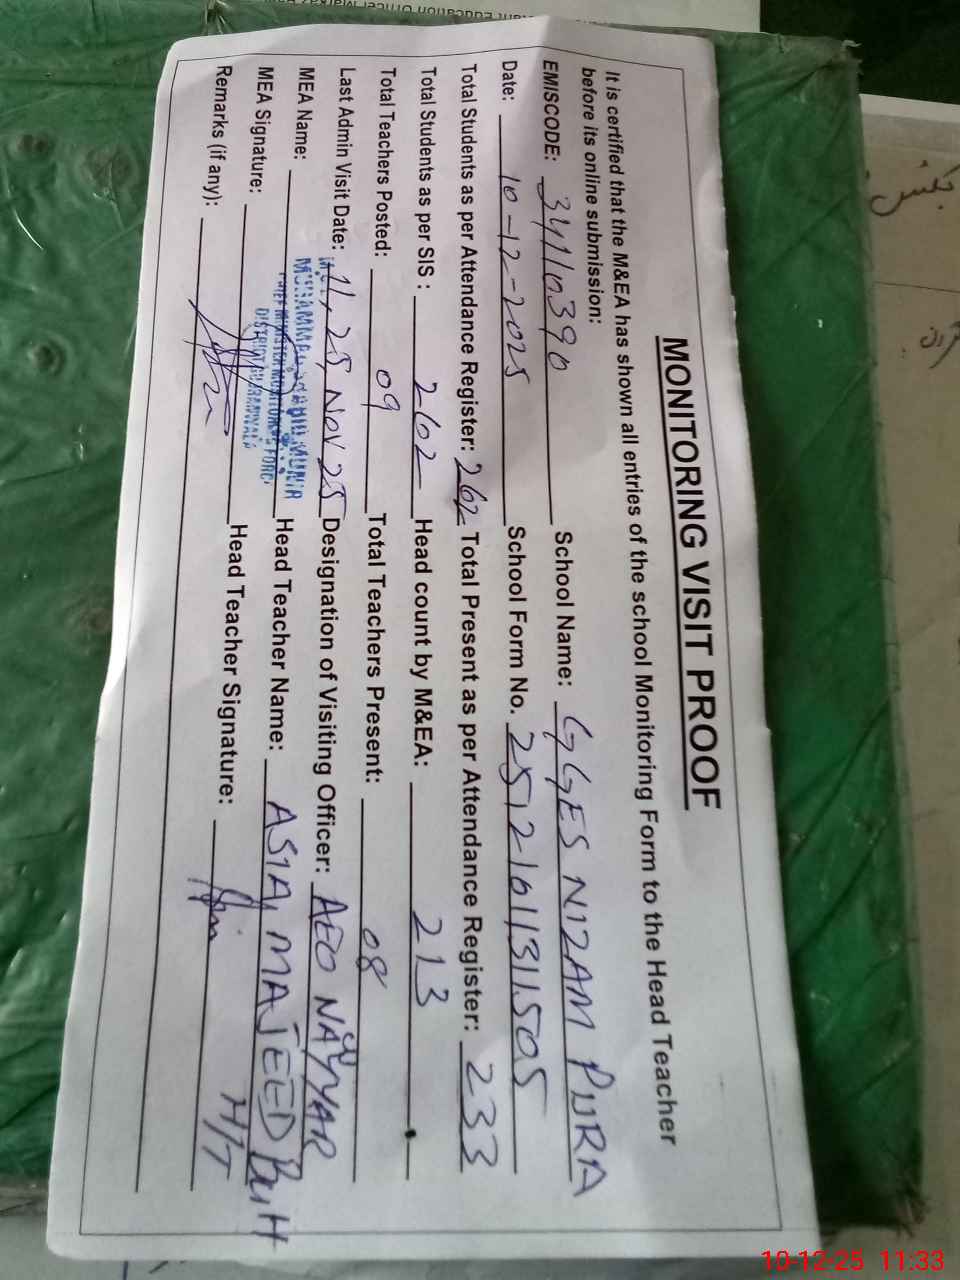 MONITORING VISIT PROOF
It is certified that the M&EA has shown all entries of the school Monitoring Form to the Head Teacher
before its online submission:
EMISCODE: 34110390 School Name: GGES NIZAM PURA
Date: 10-12-2025 School Form No. 251210131505
Total Students as per Attendance Register: 262 Total Present as per Attendance Register: 233
Total Students as per SIS : 262 Head count by M&EA: 213
Total Teachers Posted: 09 Total Teachers Present: 08
Last Admin Visit Date: 11, 25, Nov 25 Designation of Visiting Officer: AEO NAYYAR
MEA Name: MUNIR Head Teacher Name: ASIA, MAJEED Butt
CHIEF MINISTER MONITORING FORCE
DISTRICT GUJRANWALA
MEA Signature: Head Teacher Signature: H/T
Remarks (if any):
10-12-25 11:33